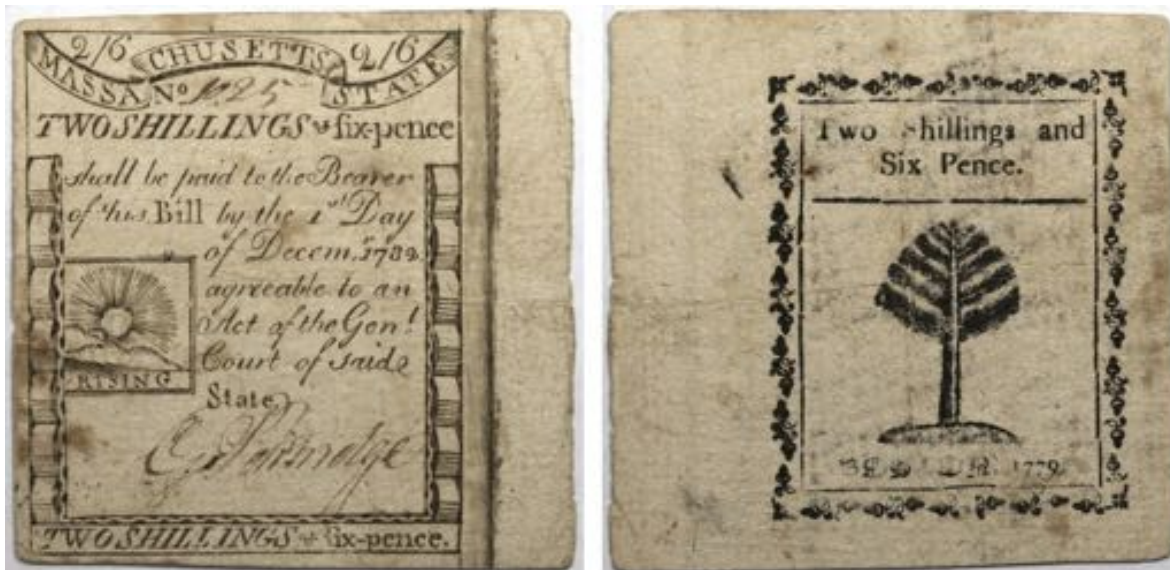 2/6 2/6
MASSA CHUSETTS STATE
No
TWO SHILLINGS & six-pence
shall be paid to the Bearer
of this Bill by the 1st Day
of Decem. 1782
agreeable to an
Act of the Genl
Court of said
State
RISING
TWO SHILLINGS & six-pence.
Two Shillings and
Six Pence.
1779